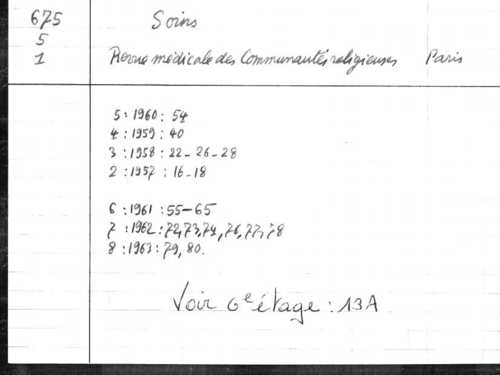 675 Soins
5
1 Revue médicale des Communautés religieuses Paris
5 : 1960 : 54
4 : 1959 : 40
3 : 1958 : 22 - 26 - 28
2 : 1957 : 16 - 18
6 : 1961 : 55 - 65
7 : 1962 : 72, 73, 74, 76, 77, 78
8 : 1963 : 79, 80.
Voir 6e étage : 13A